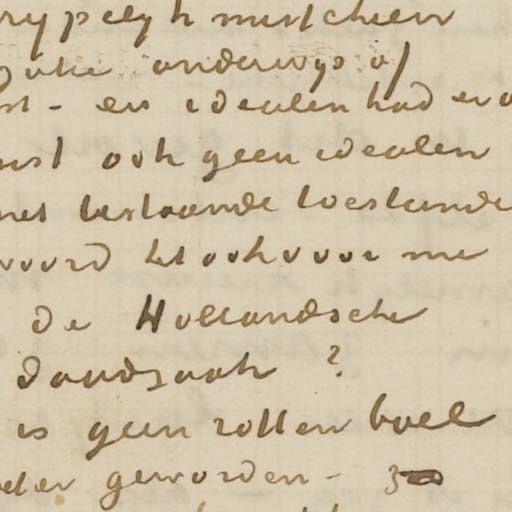 rypelyk misschien
onderwys of
st - en idealen had er
ook geen idealen
bestaande toestande
woord het ook voor me
de Hollandsche
daadzaak ?
is geen rotten boel
geworden - zoo